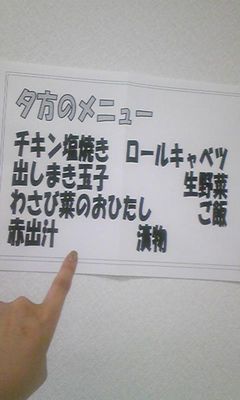 夕方のメニュー
チキン塩焼き ロールキャベツ
出しまき玉子 生野菜
わさび菜のおひたし ご飯
赤出汁 漬物